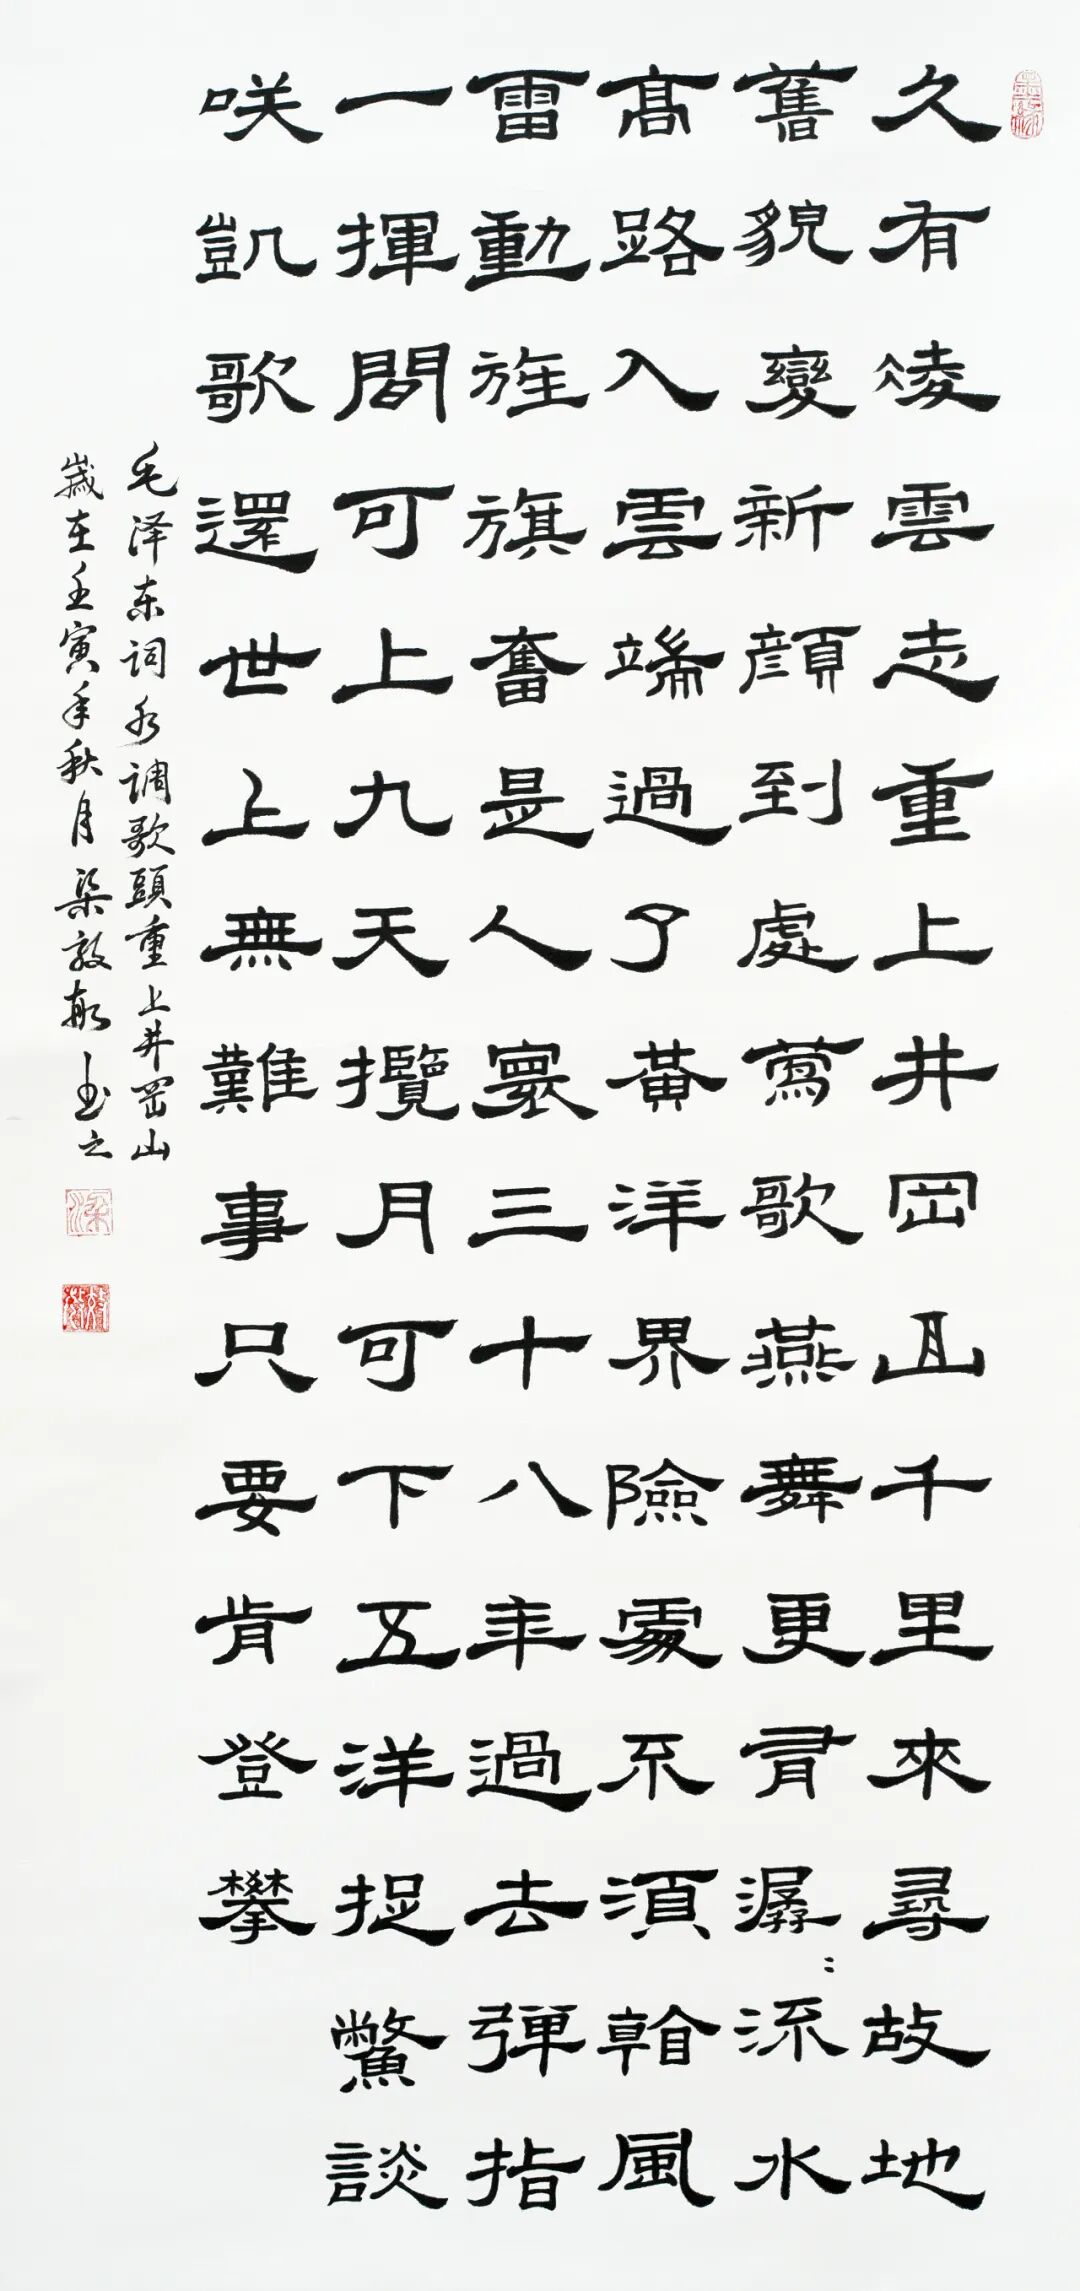 久有凌雲志重上井岡山千里來尋故地
舊貌變新顏到處鶯歌燕舞更有潺〻流水
髙路入雲端過了黃洋界險處不須看風
雷動旌旗奮是人寰三十八年過去彈指
一揮間可上九天攬月可下五洋捉鱉談
咲凱歌還世上無難事只要肯登攀
毛泽东词水调歌頭重上井岡山
歲在壬寅年秋月梁敦书之